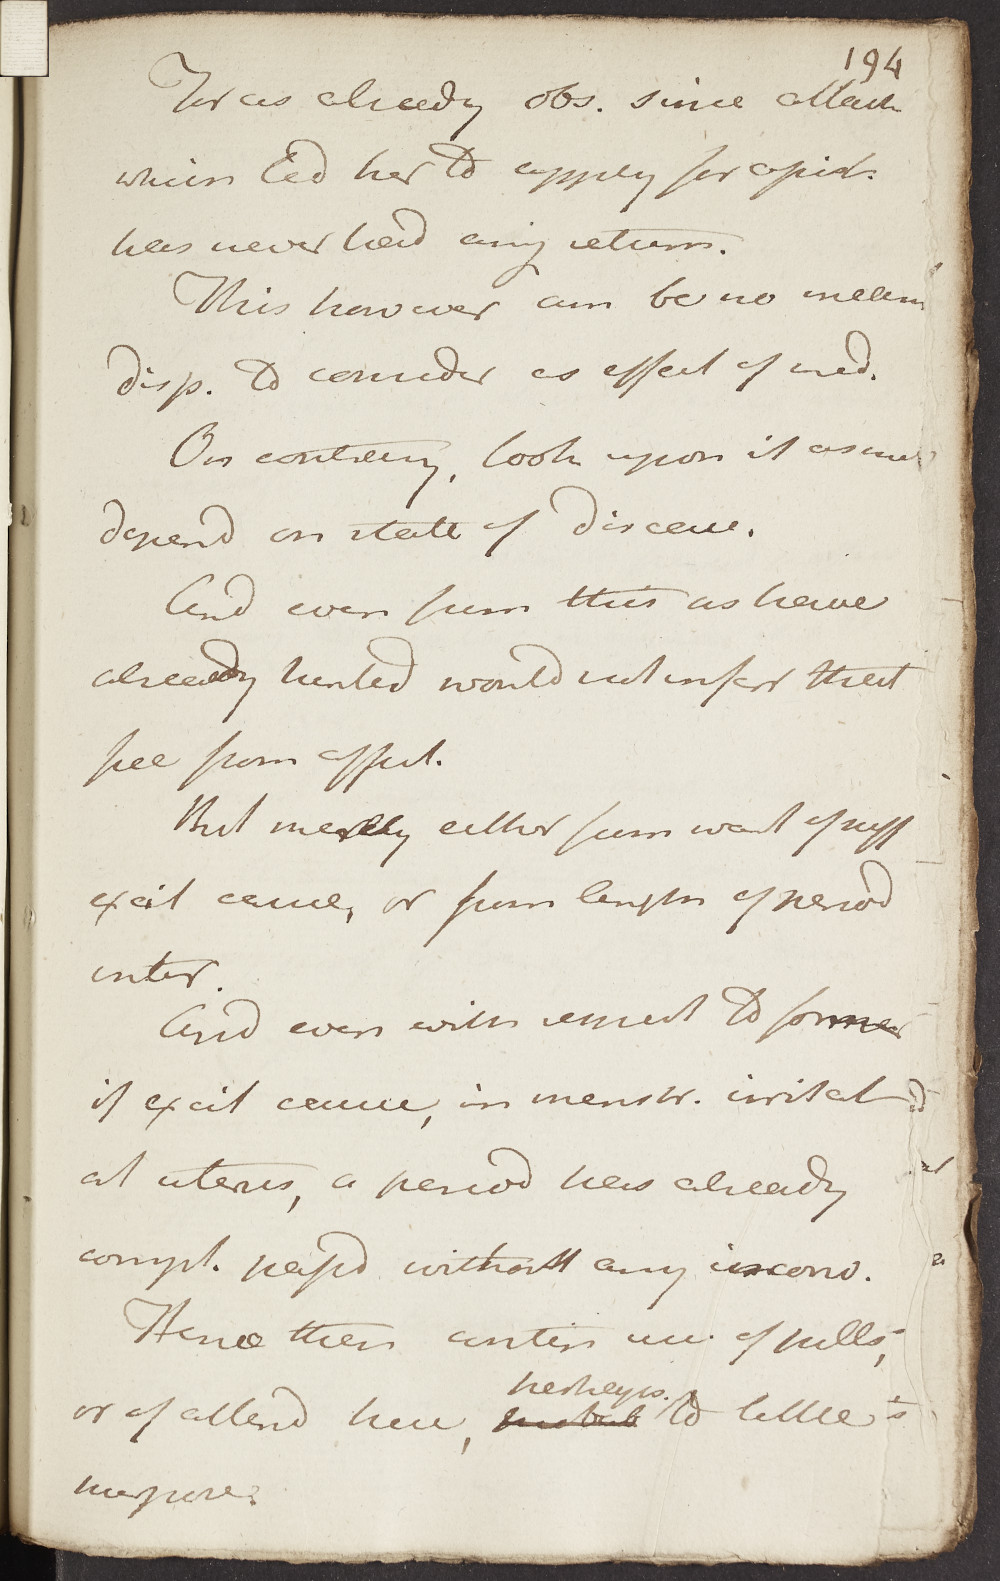 194
For as already obs. since attack
which led her to apply for assist.
has never had any return.
This however am be no means
disp. to consider as effect of med.
On contrary, look upon it as
depend on state of disease.
And even from this as have
already hinted would not infer that
free from affect.
But merely either from want of suff
excit cause, or from length of period
inter.
And even with respect to former
if excit cause, in menstr. irritat
at uterus, a period has already
compl. passd without any inconv.
Hence then contin use of pills,
or of attend here, perhaps. to little
purpose.